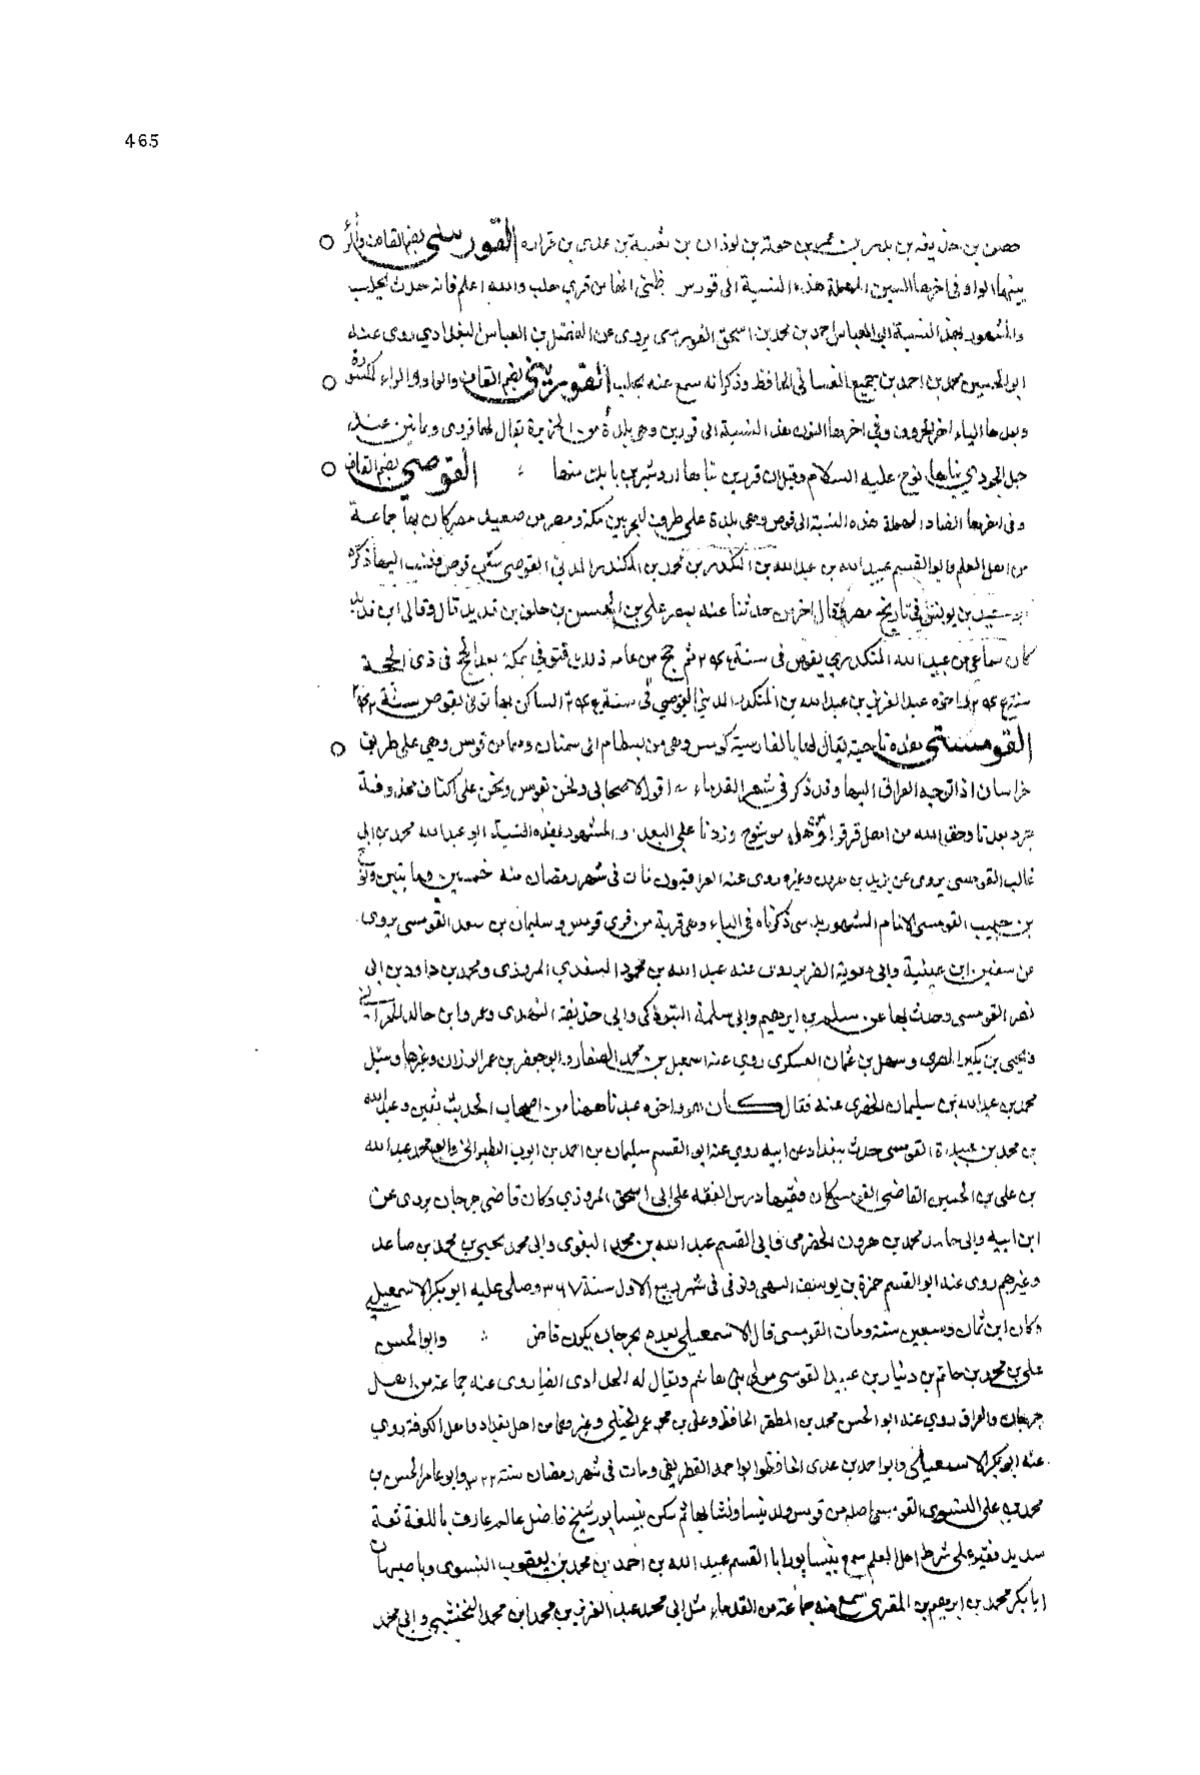 465
حصن بن حذيفة بن بدر بن عمرو بن جوية بن لوذان بن ثعلبة بن عدى بن فزاره القورسى بضم القاف والراء
بينهما الواو وفى اخرها السين المهملة هذه النسبة الى قورس ظنى انها من قري حلب والله اعلم فانه حدث بحلب
والمشهور بهذه النسبة ابو العباس احمد بن محمد بن اسحق القورسى يروى عن الفضل بن العباس البغدادي روى عنه
ابو الحسين محمد بن احمد بن جميع الغسانى الحافظ وذكر انه سمع عنه بحلب القوريني بضم القاف والواو والراء المكسورة
وبعدها الياء اخر الحروف وفي اخرها النون هذه النسبة الى قورين وهى بلدة من الجزيرة يقال لها قردى وثمانين عند
جبل الجودي بناها نوح عليه السلام وقيل ان قردين بناها اردشير بن بابك منها القوصي بضم القاف
وفى اخرها الصاد المهملة هذه النسبة الى قوص وهى بلدة على طرف البحر بين مكة ومصر من صعيد مصر كان بها جماعة
من اهل العلم وابو القسم عبيد الله بن عبد الله بن المنكدر بن محمد بن المنكدر المدنى القوصي سكن قوص فنسب اليها ذكره
ابو سعيد بن يونس في تاريخ مصر وقال اخر من حدثنا عنه بمصر على بن الحسن بن خلف بن قديد قال وقال ابن قديد
كان سماعى من عبيد الله المنكدري بقوص فى سنة ٢٤٥ ثم حج من عامه ذلك فتوفي بمكة بعد الحج فى ذى الحجة
القومسى هذه ناحية يقال لها بالفارسية كومس وهى من بسطام الى سمنان وهما من قومس وهى على طريق
خراسان اذا توجه العراقى اليها وقد ذكر فى شعر القدماء اقول لاصحابى ونحن بقومس ونحن على اكتاف محذوفة
غالب القومسى يروى عن يزيد بن هرون وغيره روى عنه العراقيون مات فى شهر رمضان سنة خمسين وماتين
بن حبيب القومسى الامام المشهور ذكرناه فى الباء وهى قرية من قرى قومس و سليمان بن سعد القومسى يروى
عن سفين ابن عيينة وابى معوية الضرير روى عنه عبد الله بن محمود السعدي المروذى ومحمد بن داود بن ابى
نصر القومسى وحدث بها عن سليمن بن ابرهيم وابى سلمة التبوذكى وابى حذيفة النهدى وعمرو ابن خالد الحرانى
ويحيى بن بكير المصرى وسهل بن عثمان العسكرى روى عنه اسمعيل بن محمد الصفار وابو جعفر بن عمر الرزاز وغيرها وسئل
محمد بن عبد الله بن سليمان الحضرى عنه فقال كان هو واخوه عندنا ههنا من اصحاب الحديث ثقتين وعبد الله
بن محمد بن عبيدة القومسى حدث ببغداد عن ابيه روي عنه ابو القسم سليمان بن احمد بن ايوب الطبرانى وابو محمد عبد الله
بن على بن الحسين القاضي القومسى كان فقيها درس الفقه على ابى اسحق المروذي وكان قاضى جرجان يروى عن
ابن ابيه وابى حامد محمد بن هرون الحضرمى وابى القسم عبد الله بن محمد البغوى وابى محمد يحيى بن محمد بن صاعد
وغيرهم روى عنه ابو القسم حمزة بن يوسف السهمى وتوفى فى شهر ربيع الاول سنة ٣٦٧ وصلى عليه ابو بكر الاسمعيلي
وكان ابن ثمان وسبعين سنة ومات القومسى قال الاسمعيلي بعده بجرجان يكون قاض وابو الحسن
على بن محمد بن حاتم بن دينار بن عبيد القومسى مولى بنى هاشم ويقال له الحدادى ايضا روى عنه جماعة من اهل
جرجان والعراق روي عنه ابو الحسن محمد بن المظفر الحافظ وعلى بن محمد عمر الختلى وغيرهما من اهل بغداد واهل الكوفة روي
عنه ابو بكر الاسمعيلى وابو احمد بن عدى الحافظ وابو احمد الغطريفي ومات فى شهر رمضان سنة ٣٢٢ وابو عامر الحسن بن
محمد بن على النسوى القومسى اصله من قومس ولد بنسا ونشا بها ثم سكن نيسابور شيخ فاضل عالم عارف باللغة ثقة
سديد فقير على شرط اهل العلم سمع بنيسابور ابا القسم عبيد الله بن احمد بن محمد بن يعقوب النسوى وباصبهان
ابا بكر محمد بن ابرهيم بن المقرئ سمع منه جماعة من القدماء مثل ابى محمد عبد العزيز بن محمد ابن محمد النخشبي وابى محمد